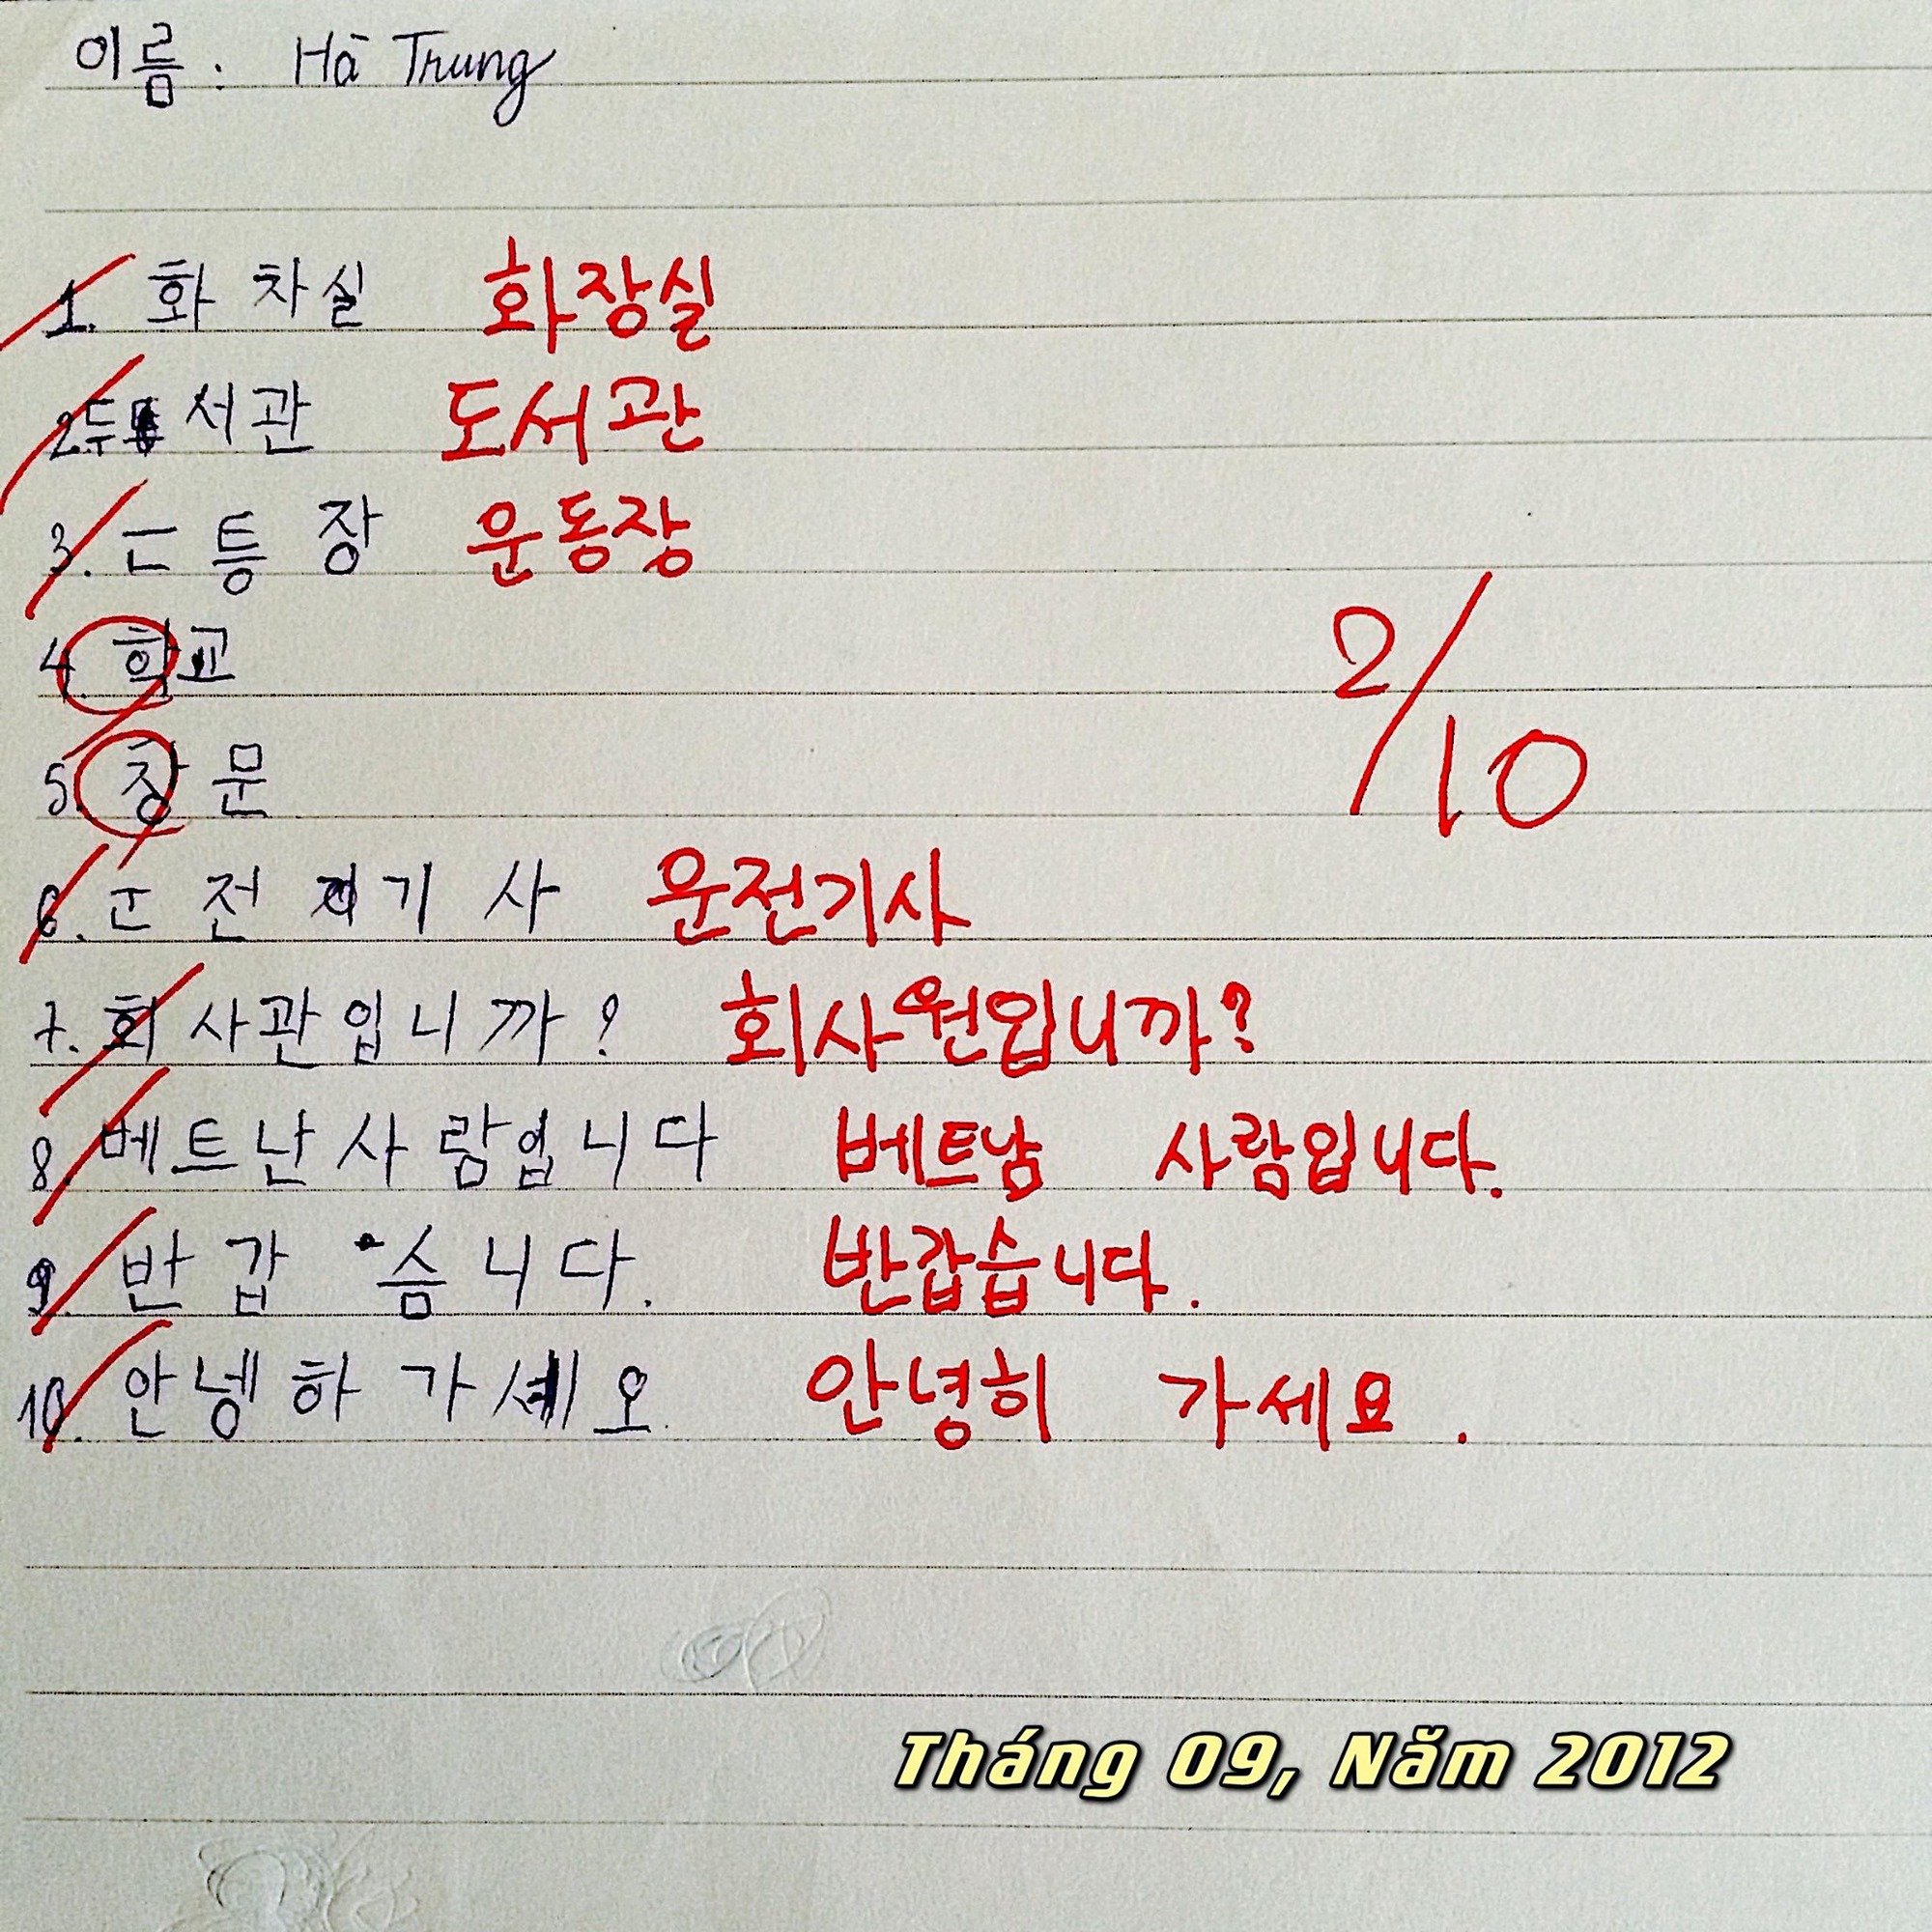 이름: Hà Trung
1. 화 차실 화장실
2. 두 서관 도서관
3. 등 장 운동장
4. 학교
5. 창문
2/10
6. 전 기 사 운전기사
7. 회사관입니까? 회사원입니까?
8. 베트난사람입니다 베트남 사람입니다.
9. 반갑 슴니다. 반갑습니다.
10. 안넹하 가세오. 안녕히 가세요.
Tháng 09, Năm 2012